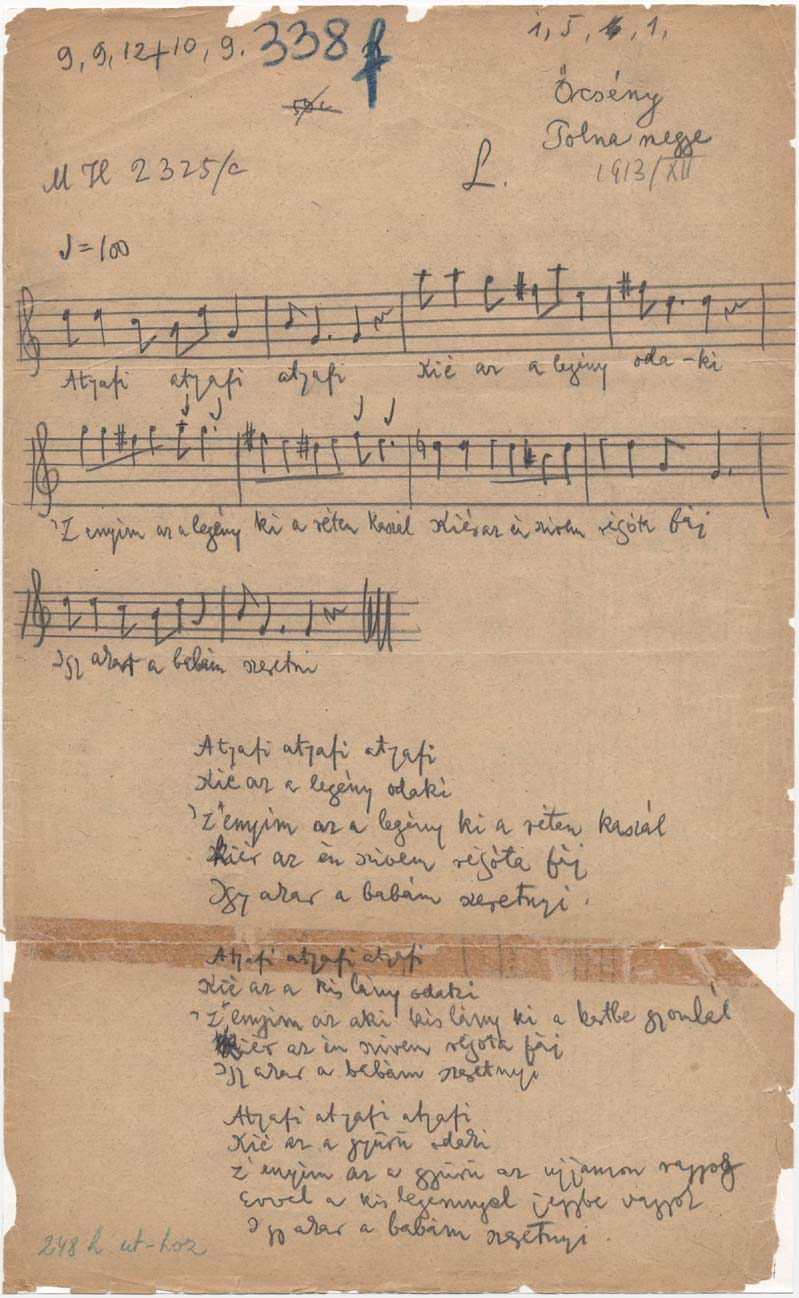 9, 9, 12+10, 9. 338 f
1, 5, 1,
Őrcsény
Tolna megye
1913/XII
M H 2325/c
L.
♩=100
Atyafi atyafi atyafi Kié az a legény oda-ki
'Z enyim az a legény ki a réten kaszál Kiér az én szivem régóta fáj
Igy akar a babám szeretni
Atyafi atyafi atyafi
Kié az a legény odaki
'Z enyim az a legény ki a réten kaszál
Kiér az én szivem régóta fáj
Igy akar a babám szeretnyi.
Atyafi atyafi atyafi
Kié az a kis lány odaki
'Z enyim az aki kis lány ki a kertbe gyomlál
Kiér az én szivem régóta fáj
Igy akar a babám szeretnyi
Atyafi atyafi atyafi
Kié az a gyűrű odaki
Z' enyim az a gyűrű az ujjamon ragyog
Evvel a kis legénnyel jegybe vagyok
Igy akar a babám szeretnyi.
248 h ut-hoz